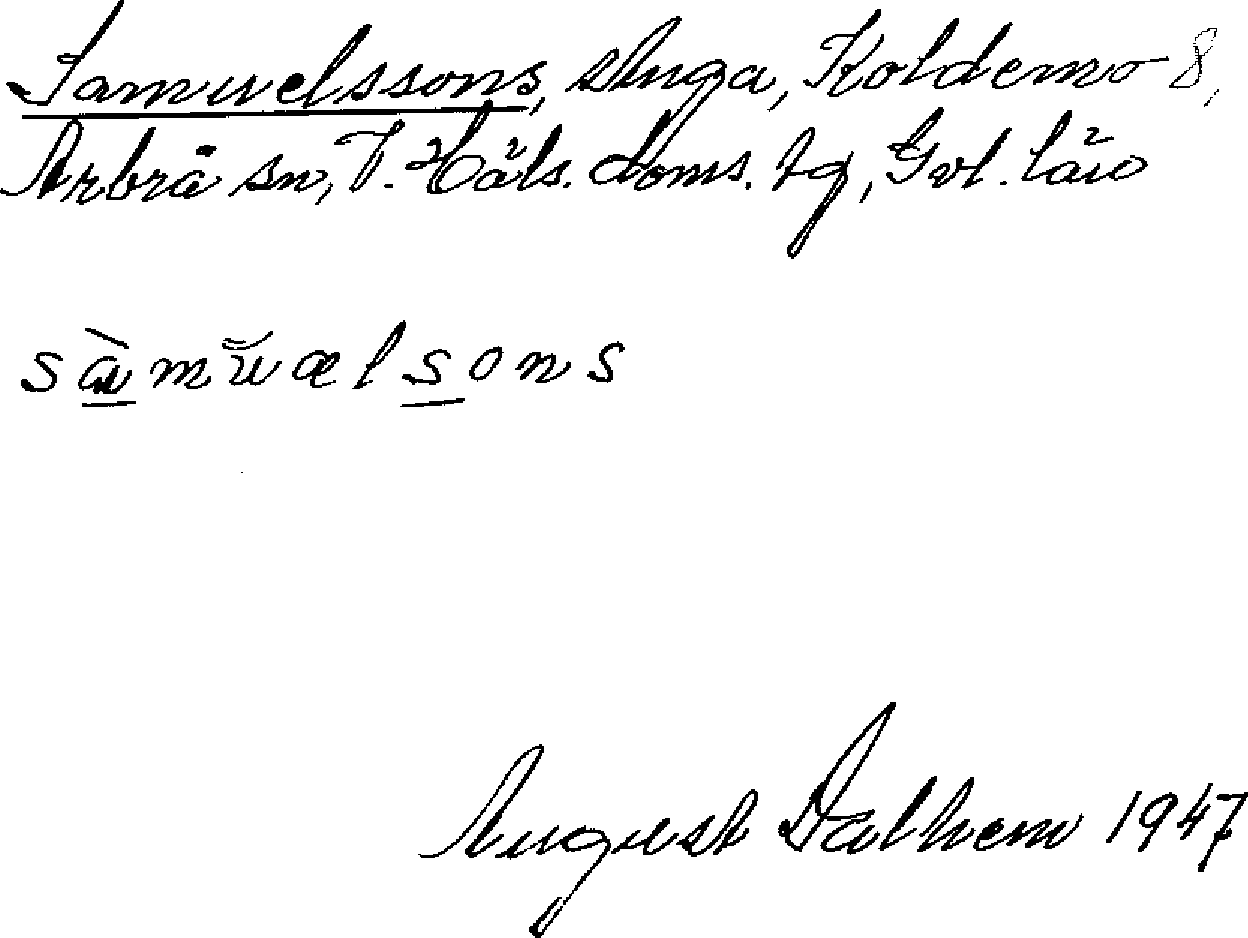 Samuelssons, stuga, Koldemo 8,
Arbrå sn, V. Häls. doms. tg, Gvl. län
sàmŭælsons
August Dalhem 1947